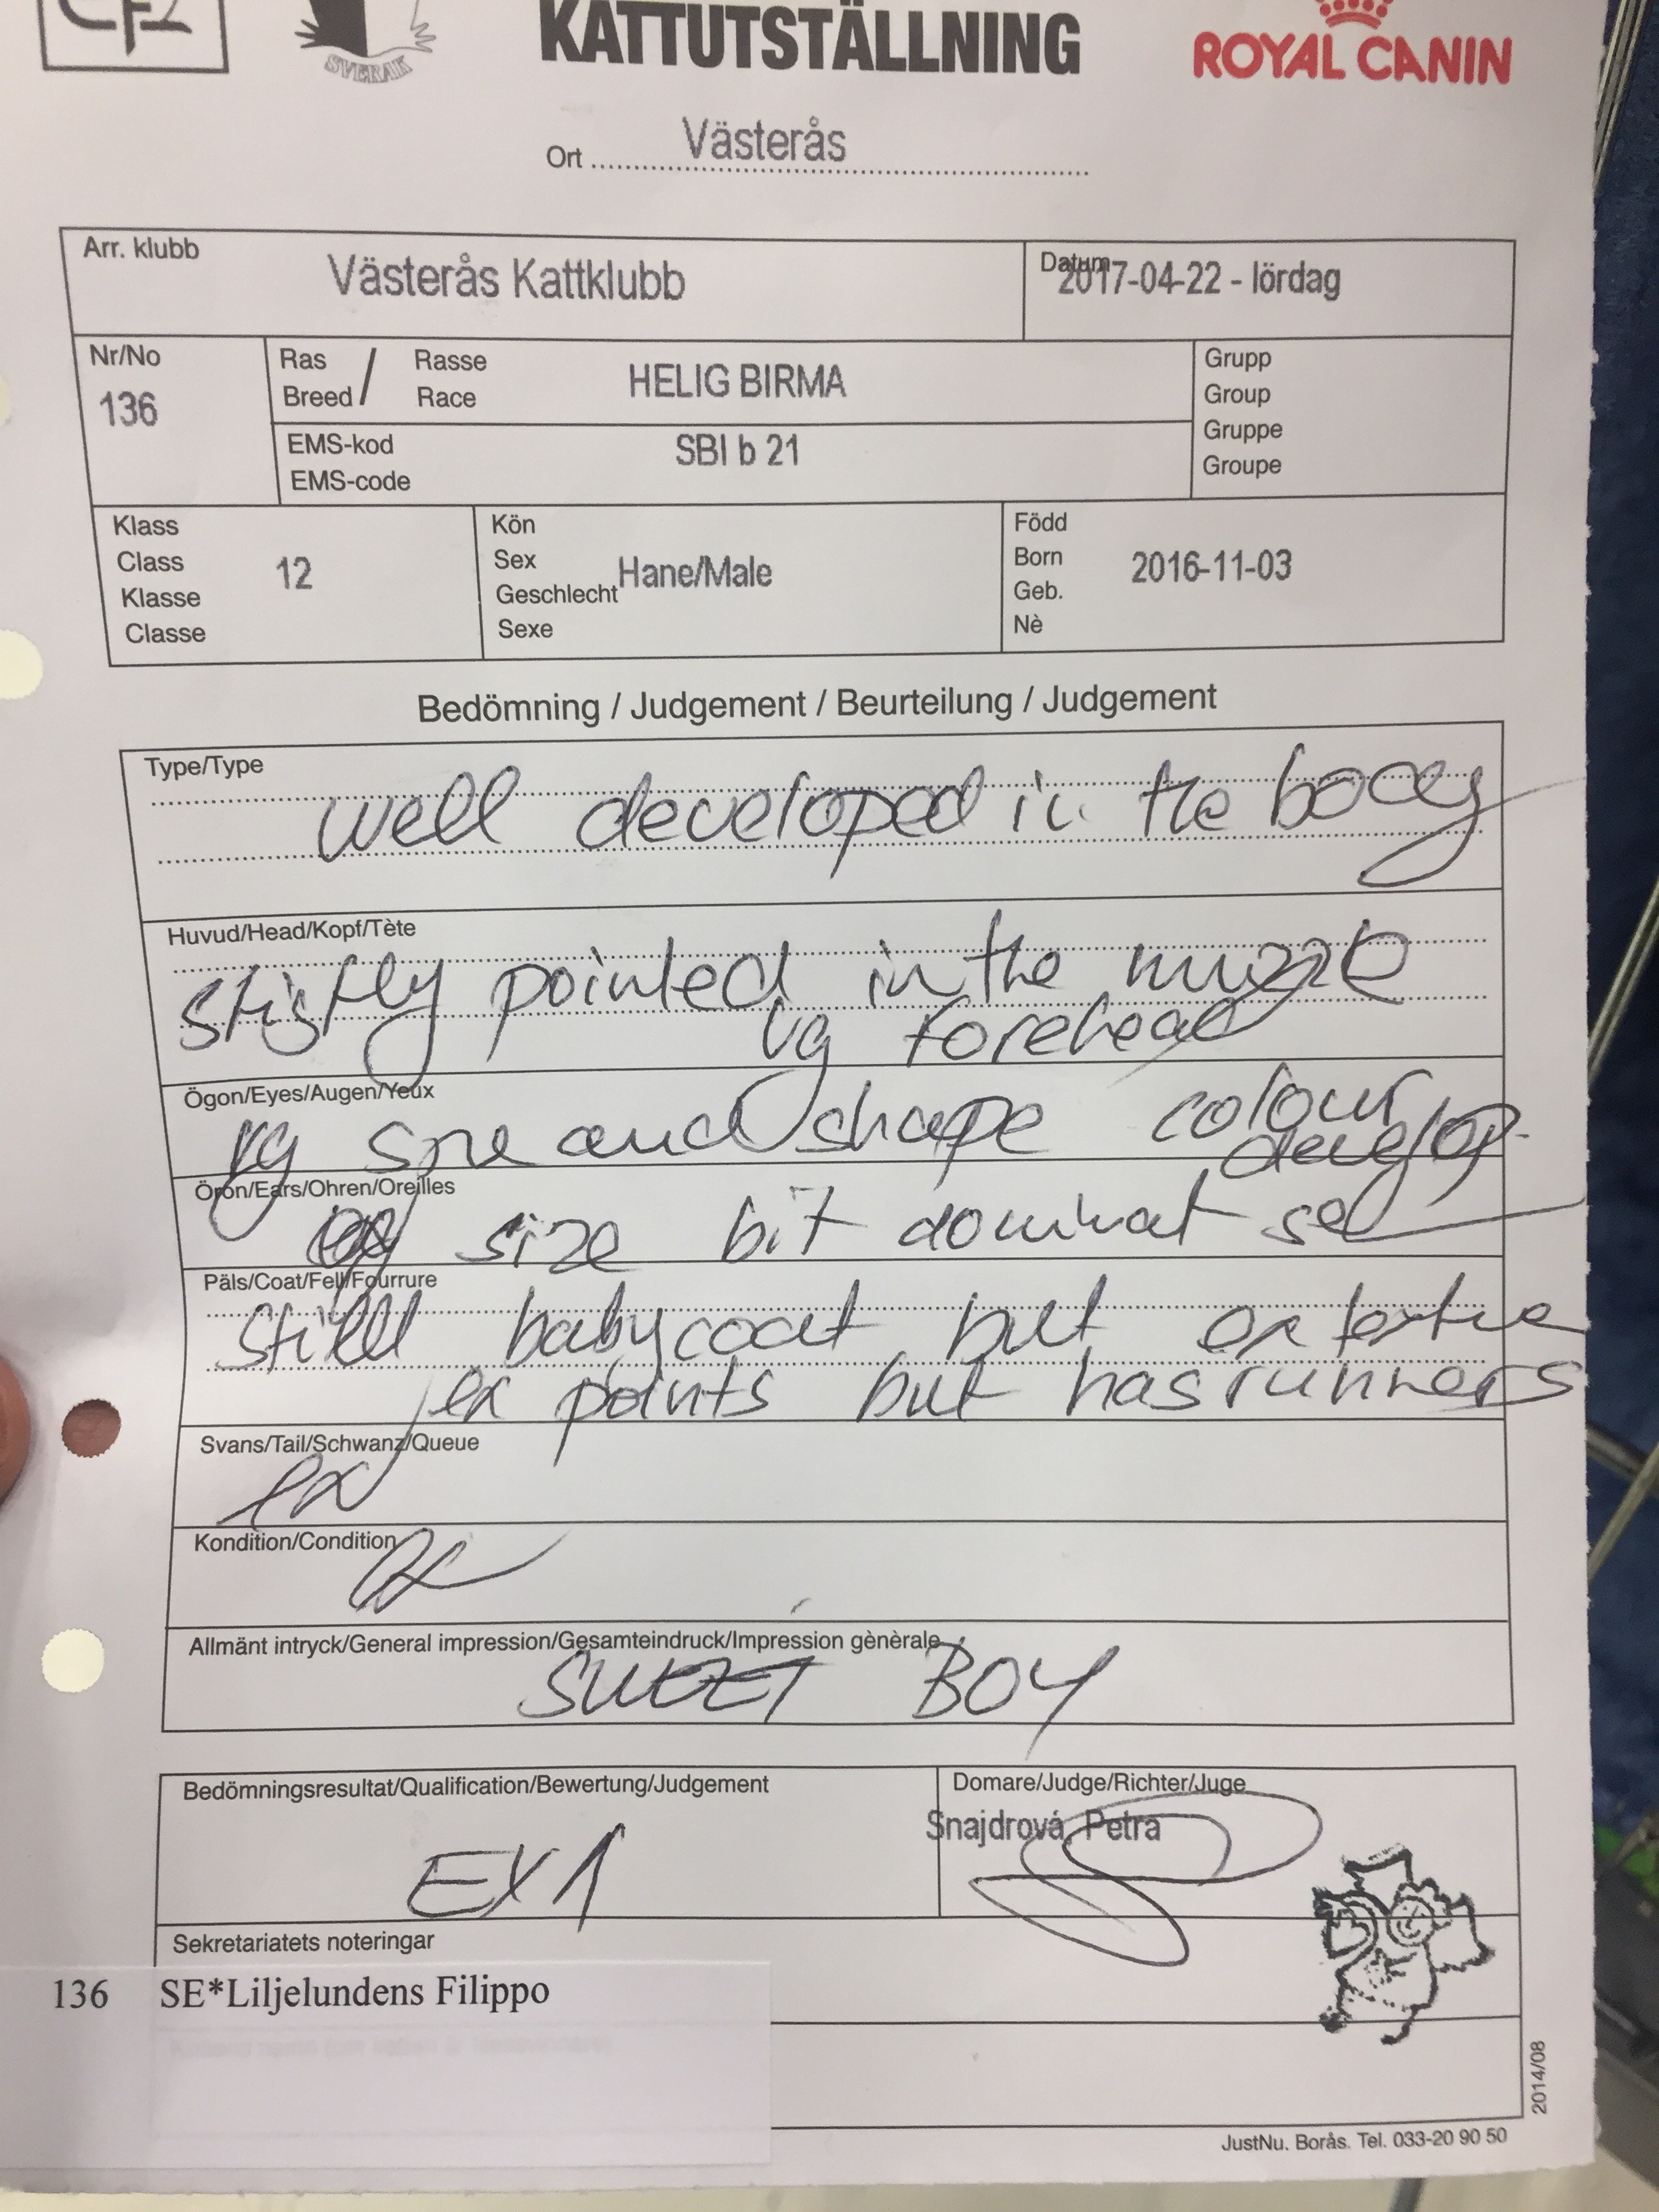 SVERAK
KATTUTSTÄLLNING
ROYAL CANIN
Ort Västerås
Arr. klubb
Västerås Kattklubb
Datum
2017-04-22 - lördag
Nr/No
136
Ras / Rasse
Breed / Race
HELIG BIRMA
EMS-kod
EMS-code
SBI b 21
Grupp
Group
Gruppe
Groupe
Klass
Class
Klasse
Classe
12
Kön
Sex
Geschlecht
Sexe
Hane/Male
Född
Born
Geb.
Nè
2016-11-03
Bedömning / Judgement / Beurteilung / Judgement
Type/Type
well developed in the body
Huvud/Head/Kopf/Tète
pointed in the muzzle
vg forehead
Ögon/Eyes/Augen/Yeux
vg size and shape colour
develop.
Öron/Ears/Ohren/Oreilles
size bit dominat set
Päls/Coat/Fell/Fourrure
still babycoat but ex
ex points but has runners
Svans/Tail/Schwanz/Queue
ex
Kondition/Condition
ex
Allmänt intryck/General impression/Gesamteindruck/Impression gènèrale
SWEET BOY
Bedömningsresultat/Qualification/Bewertung/Judgement
EX 1
Domare/Judge/Richter/Juge
Snajdrová, Petra
Sekretariatets noteringar
136 SE*Liljelundens Filippo
2014/08
JustNu. Borås. Tel. 033-20 90 50